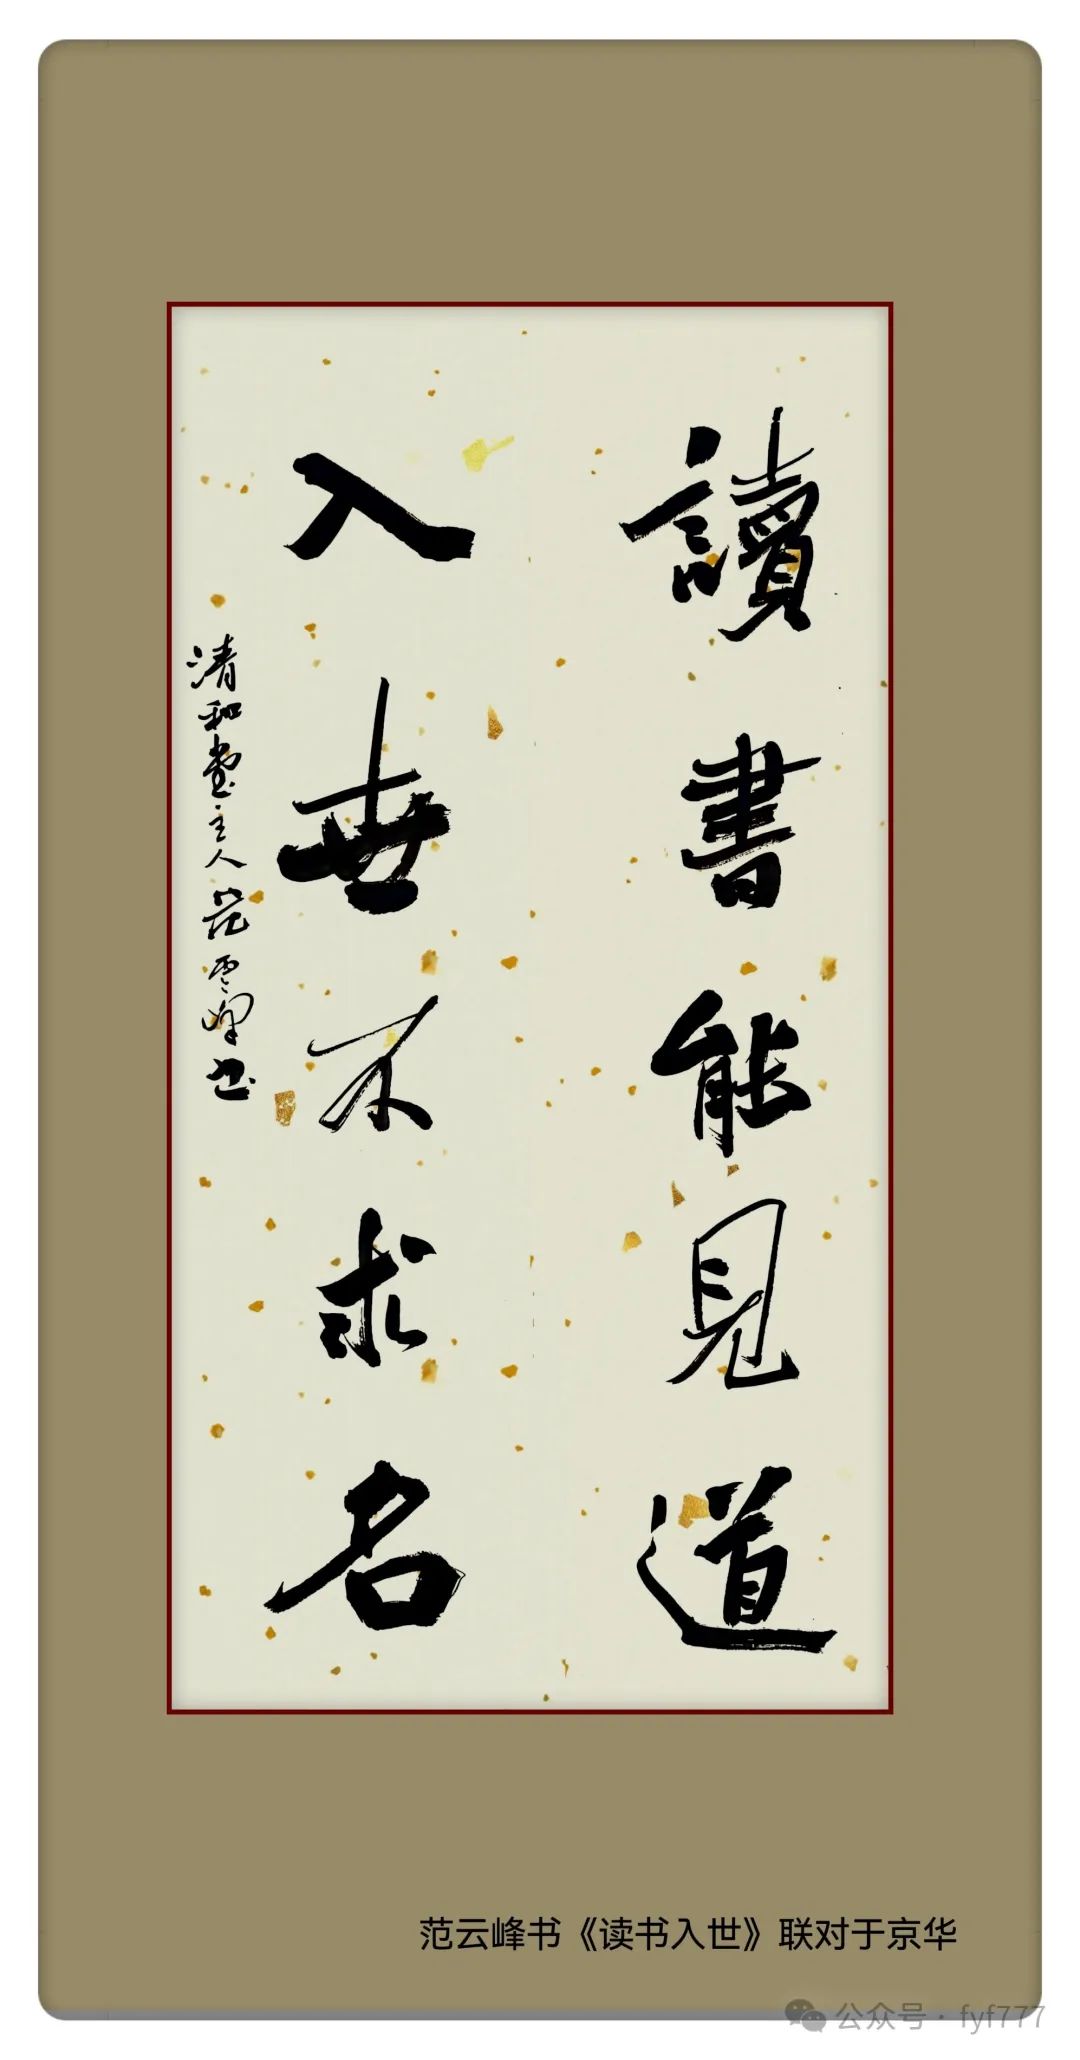 讀書能見道
入世不求名
清和堂主人范雲峰书
范云峰书《读书入世》联对于京华
公众号·fyf777